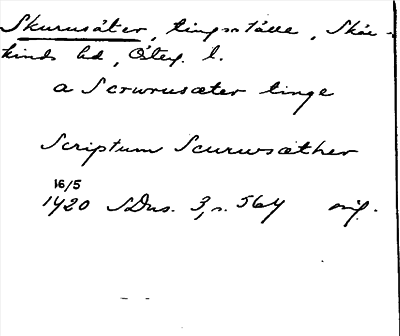 Skurusäter, tingsställe, Skär-
kinds hd, Östeg. l.
a Scrwrusæter tinge
Scriptum Scurwsæther
16/5
1420 SDns. 3, s. 564 orig.